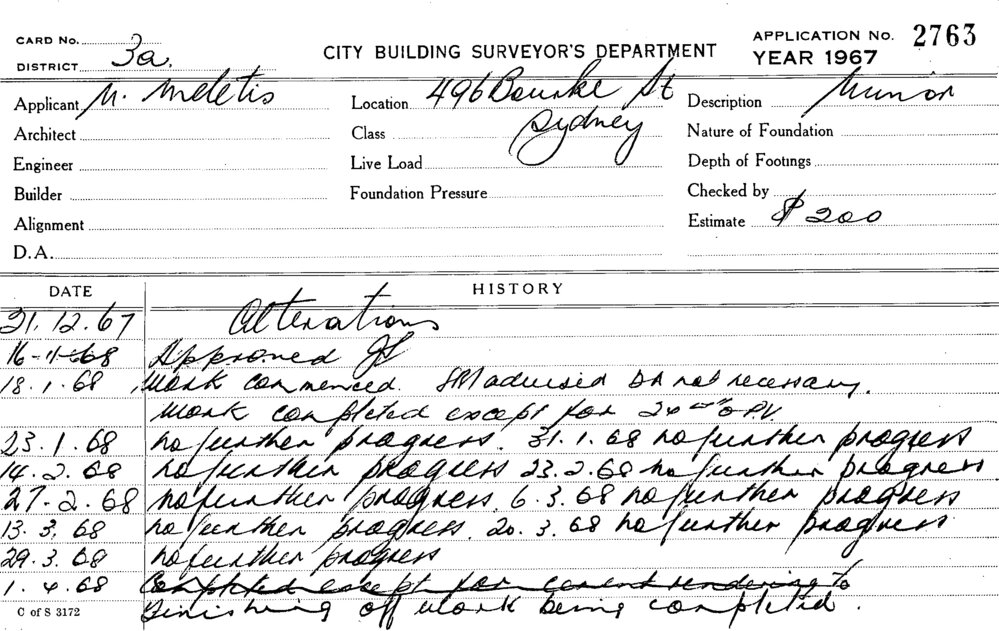 CARD No. APPLICATION No. 2763
DISTRICT 3a. CITY BUILDING SURVEYOR'S DEPARTMENT YEAR 1967
Applicant N. Meletis Location 496 Bourke St Description Minor
Architect Class Sydney Nature of Foundation
Engineer Live Load Depth of Footings
Builder Foundation Pressure Checked by
Alignment Estimate $ 200
D.A.
DATE HISTORY
21.12.67 Alterations
16-1-68 Approved
18.1.68 Work commenced. advised DA not necessary.
Work completed except for
23.1.68 no further progress. 31.1.68 no further progress
14.2.68 no further progress 23.2.68 no further progress
27.2.68 no further progress. 6.3.68 no further progress
13.3.68 no further progress. 20.3.68 no further progress
29.3.68 no further progress
1.4.68 Completed except for cement rendering to
Finishing off work being completed.
C of S 3172